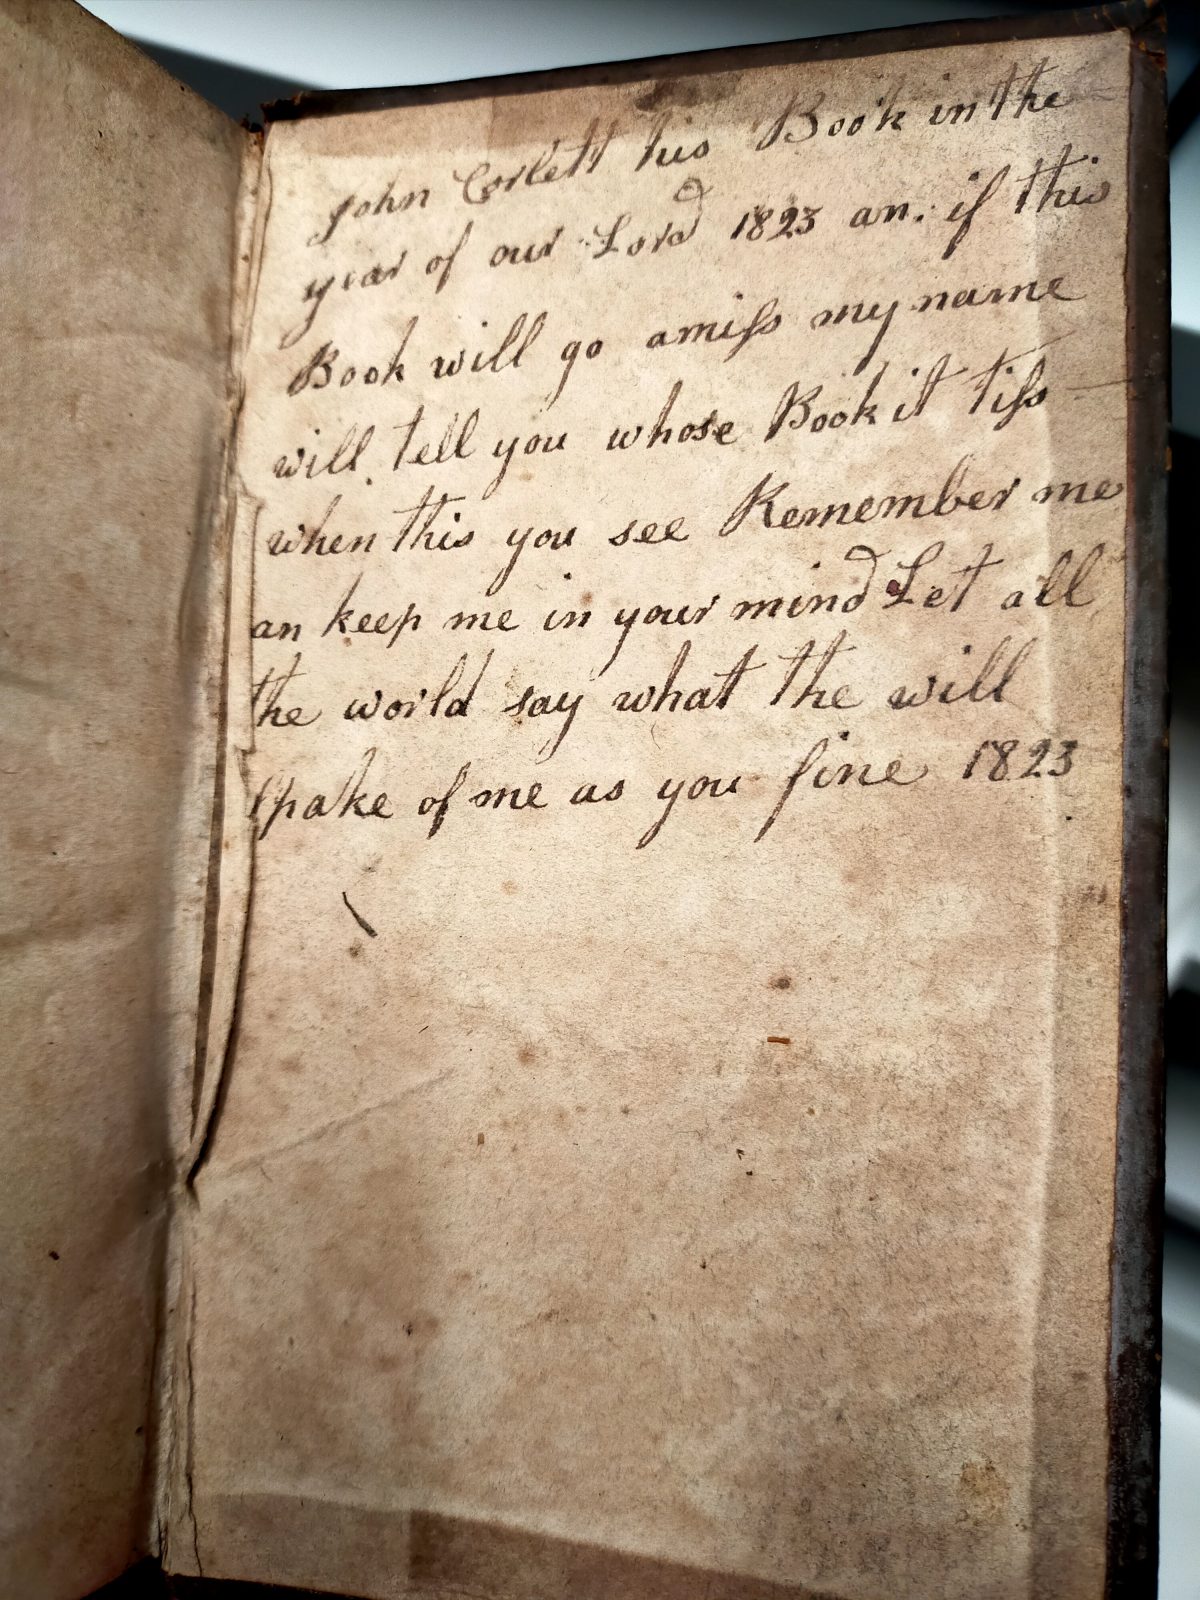 John Corlett his Book in the
year of our Lord 1823 an. if this
Book will go amiſs my name
will tell you whose Book it tiſs
when this you see Remember me
an keep me in your mind Let all
the world say what the will
Spake of me as you fine 1823